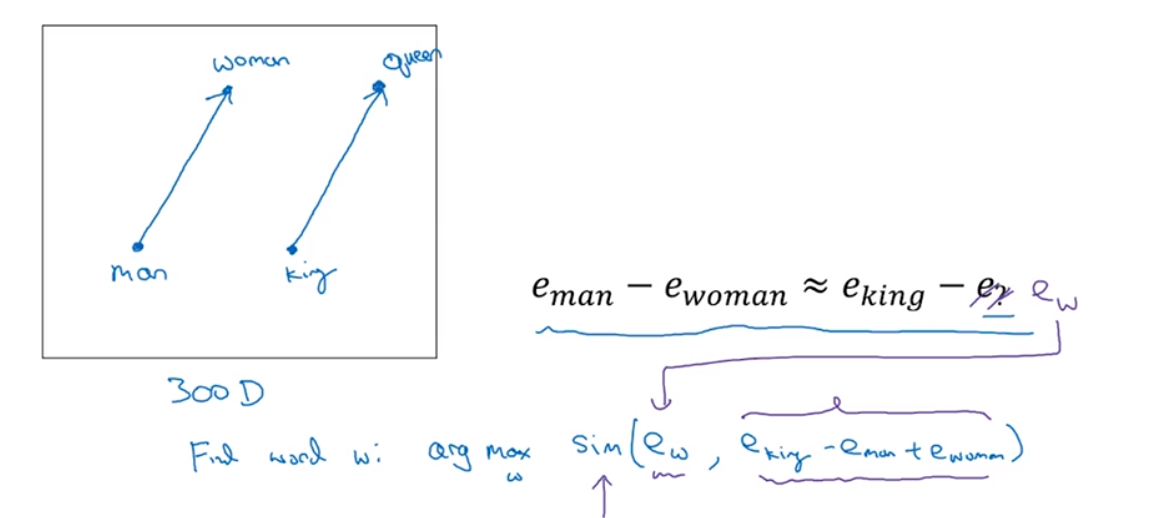 woman Queen
man king
e_man − e_woman ≈ e_king − e_? e_w
300 D
Find word w: arg max_w sim(e_w, e_king - e_man + e_woman)